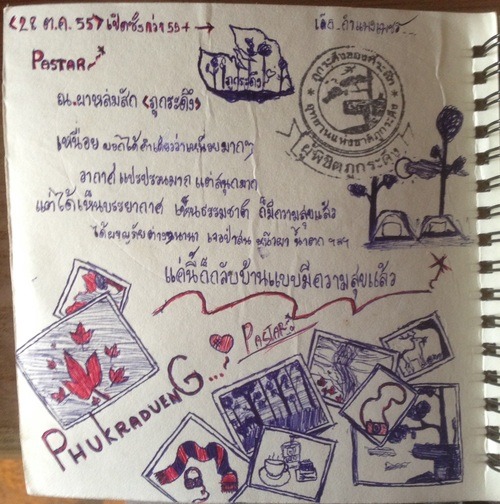 <28 ต.ค. 55> เปิดซิงกว่า 55+ →
PASTAR
ภูกระดึง
ณ.ผาหล่มสัก <ภูกระดึง>
ภูกระดึงลองคำระพึง
อุทยานแห่งชาติภูกระดึง
ผู้พิชิตภูกระดึง
เหนื่อย บอกได้คำเดียวว่าเหนื่อยมากๆ
อากาศ แปรปรวนมาก แต่สนุกมาก
แค่ได้เห็นบรรยากาศ เห็นธรรมชาติ ก็มีความสุขแล้ว
ได้ผจญภัย นานา เจอป่าสน น้ำตก ฯลฯ
แค่นี้ก็กลับบ้านแบบมีความสุขแล้ว
PASTAR
PHUKRADUENG...